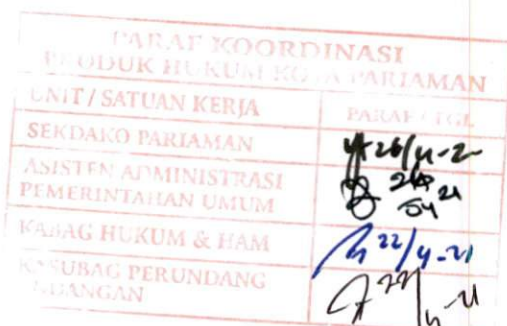 PARAF KOORDINASI
PRODUK HUKUM KOTA PARIAMAN
UNIT / SATUAN KERJA PARAF / TGL
SEKDAKO PARIAMAN
ASISTEN ADMINISTRASI
PEMERINTAHAN UMUM
KABAG HUKUM & HAM 22/4-21
KASUBAG PERUNDANG
UNDANGAN